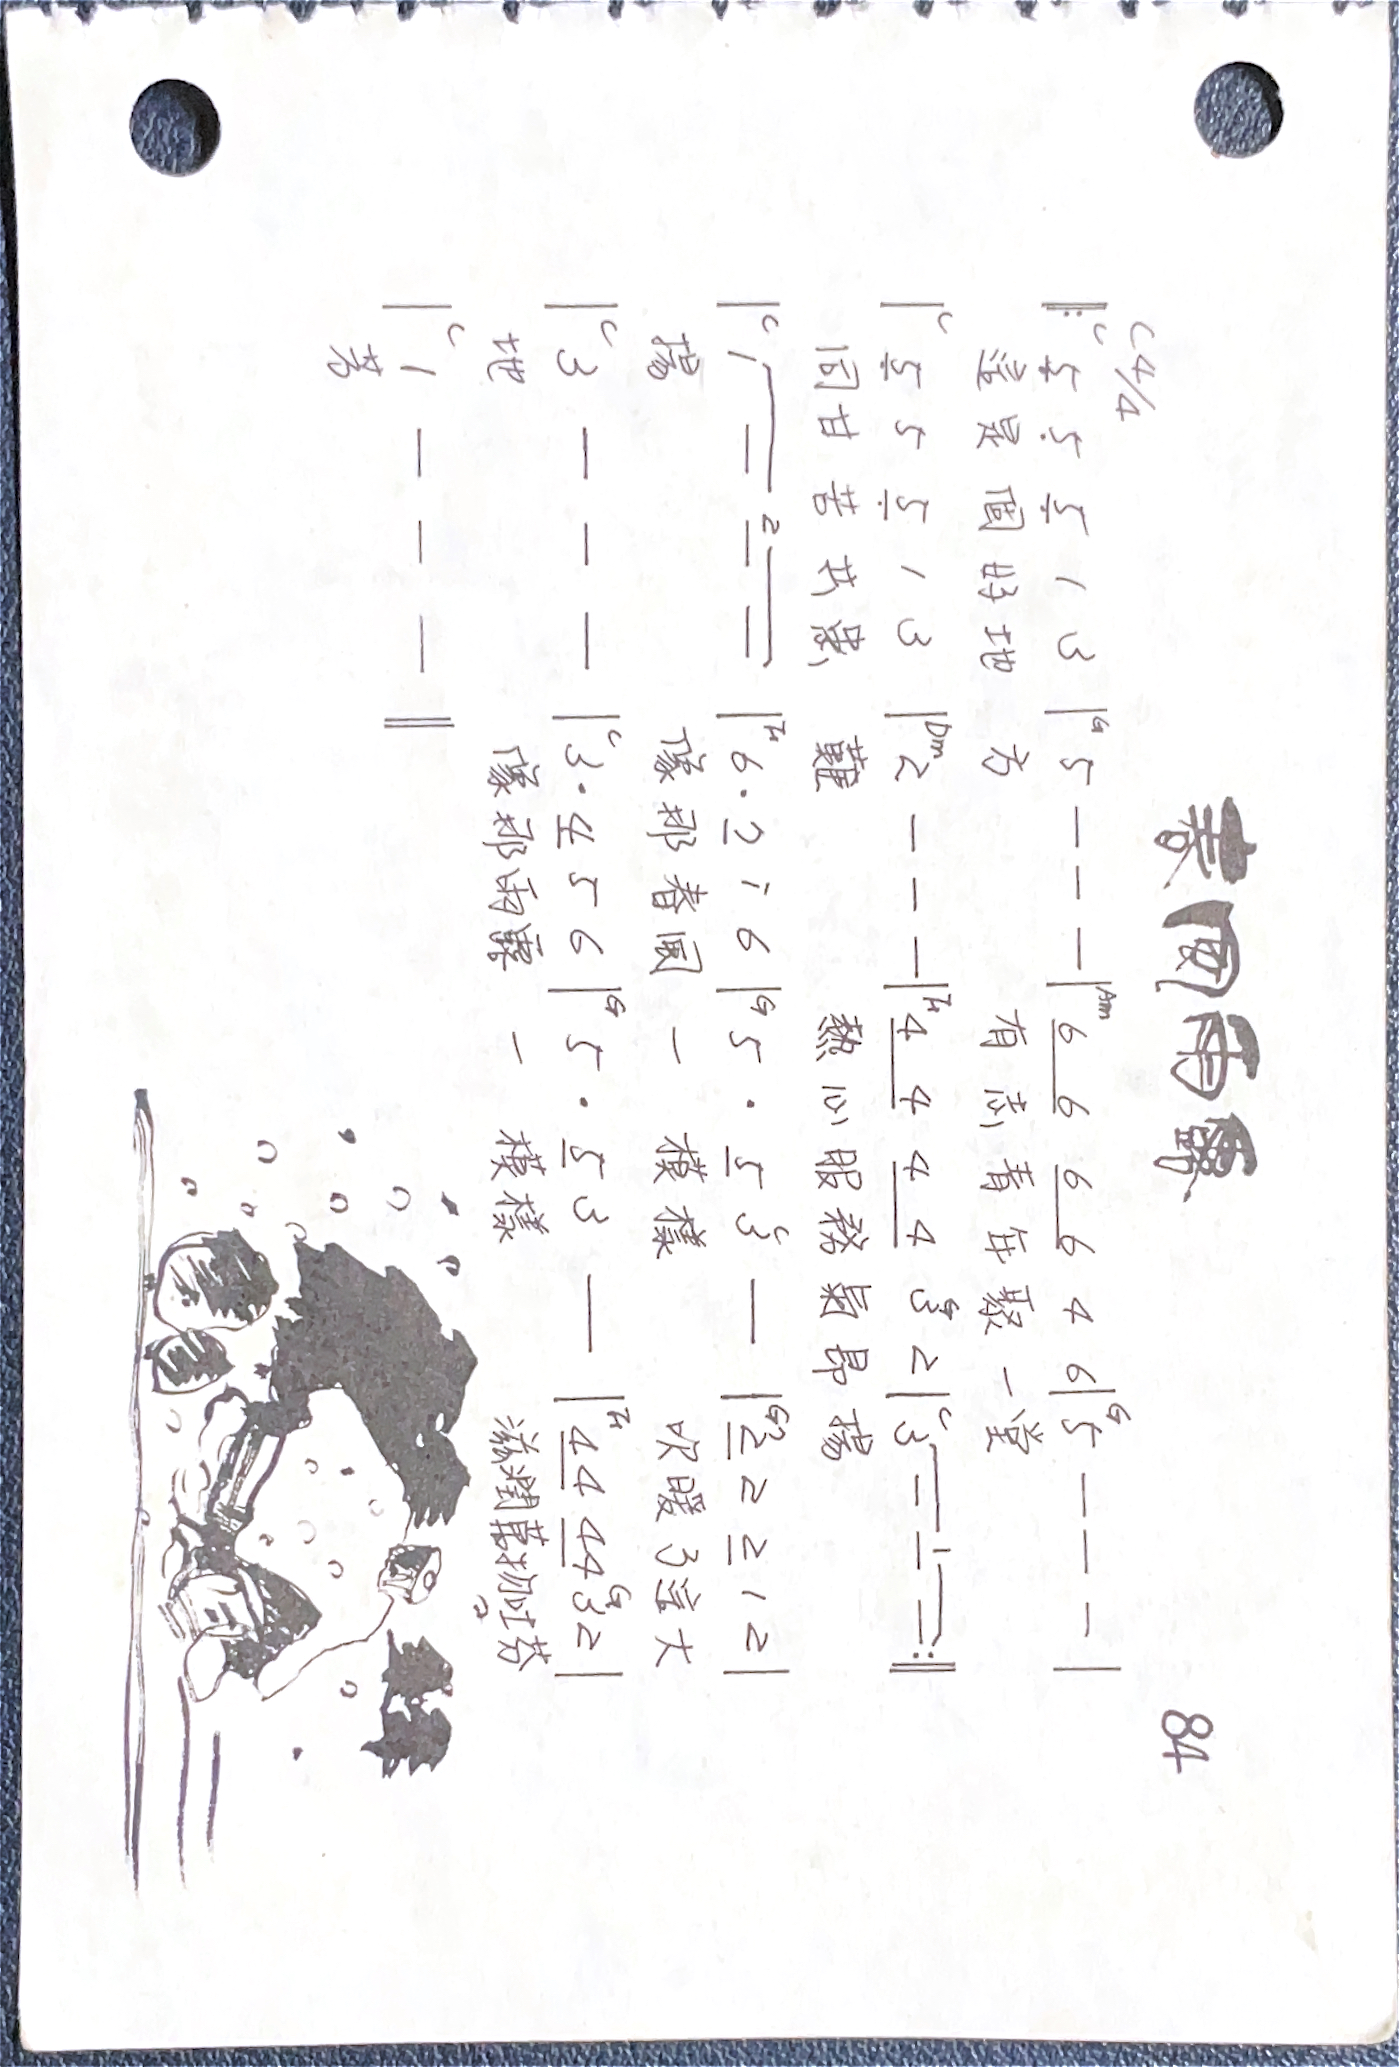 春風雨露
84
C 4/4
‖: C 5 5 5 1 3 | G 5 — — — | Am 6 6 6 6 4 6 | G 5 — — — |
這是個好地 方 有志青年聚一堂
| C 5 5 5 1 3 | Dm 2 — — — | F 4 4 4 4 G 3 2 | C 3 — 1 — — :‖
同甘苦共患 難 熱心服務氣昂揚
| C 1 — 2 — — | F 6 · 2 1 6 | G 5 · 5 C 3 — | G7 2 2 2 1 2 |
揚 像那春風 一 模樣 吹暖了這大
| C 3 — — — | C 3 · 4 5 6 | G 5 · 5 3 — | F 4 4 4 4 G 3 2 |
地 像那雨露 一 模樣 滋潤萬物吐芬
| C 1 — — — ‖
芳